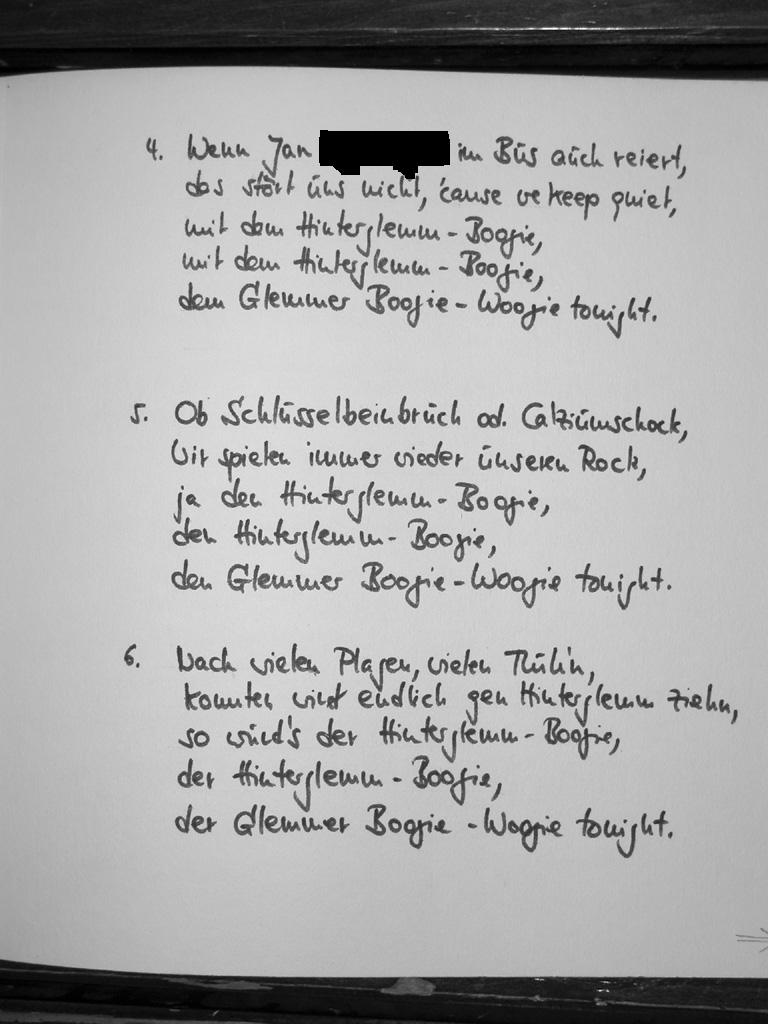 4. Wenn Jan im Bus auch reiert,
das stört uns nicht, 'cause we keep quiet,
mit dem Hinterglemm-Boogie,
mit dem Hinterglemm-Boogie,
dem Glemmer Boogie-Woogie tonight.
5. Ob Schlüsselbeinbruch od. Calziumschock,
Wir spielen immer wieder unseren Rock,
ja den Hinterglemm-Boogie,
den Hinterglemm-Boogie,
den Glemmer Boogie-Woogie tonight.
6. Nach vielen Plagen, vielen Müh'n,
konnten wir endlich gen Hinterglemm ziehn,
so wird's der Hinterglemm-Boogie,
der Hinterglemm-Boogie,
der Glemmer Boogie-Woogie tonight.